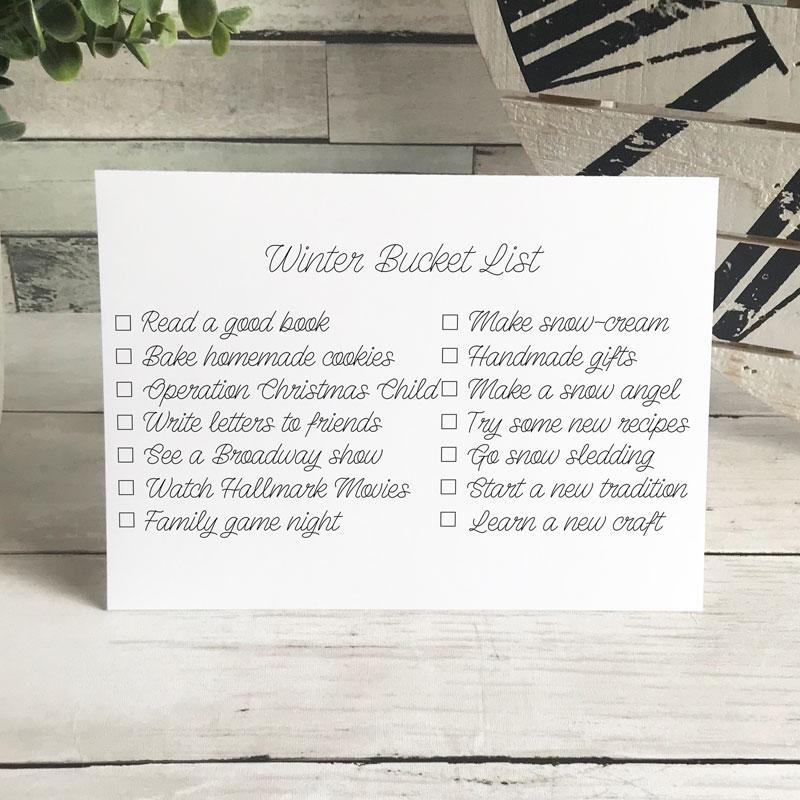 Winter Bucket List
Read a good book
Bake homemade cookies
Operation Christmas Child
Write letters to friends
See a Broadway show
Watch Hallmark Movies
Family game night
Make snow-cream
Handmade gifts
Make a snow angel
Try some new recipes
Go snow sledding
Start a new tradition
Learn a new craft